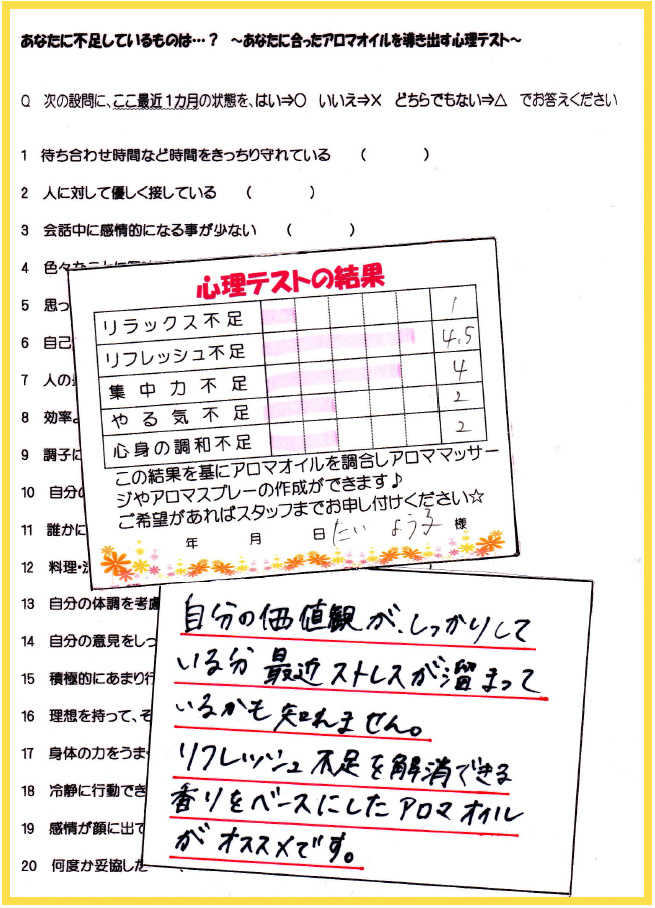 あなたに不足しているものは…？　～あなたに合ったアロマオイルを導き出す心理テスト～
Q　次の設問に、ここ最近１カ月の状態を、はい⇒〇　いいえ⇒×　どちらでもない⇒△　でお答えください
1　待ち合わせ時間など時間をきっちり守れている　（　　　）
2　人に対して優しく接している　（　　　）
3　会話中に感情的になる事が少ない　（　　　）
4　色々なことに
5　思っ
6　自己
7　人の
8　効率
9　調子に
10　自分の
11　誰かに
12　料理・
13　自分の体調を考慮
14　自分の意見をしっ
15　積極的にあまり行
16　理想を持って、そ
17　身体の力をうま
18　冷静に行動でき
19　感情が顔に出て
20　何度か妥協した
心理テストの結果
リラックス不足　1
リフレッシュ不足　4.5
集中力不足　4
やる気不足　2
心身の調和不足　2
この結果を基にアロマオイルを調合しアロママッサー
ジやアロマスプレーの作成ができます♪
ご希望があればスタッフまでお申し付けください☆
年　月　日　たい　よう子　様
自分の価値観が、しっかりして
いる分 最近ストレスが溜まって
いるかも知れません。
リフレッシュ不足を解消できる
香りをベースにしたアロマオイル
がオススメです。